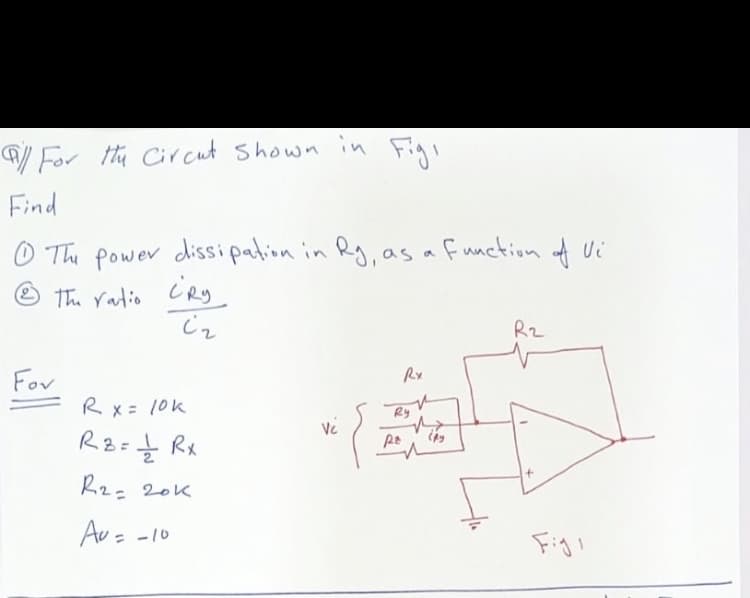 Q// For the Circut shown in Fig1
Find
① The power dissipation in Ry, as a function of Vi
② The ratio iRy
i2
For
Rx = 10k
Rz = 1/2 Rx
R2 = 20k
Av = -10
R2
Rx
Ry
Vi
Rz iRy
-
+
Fig1